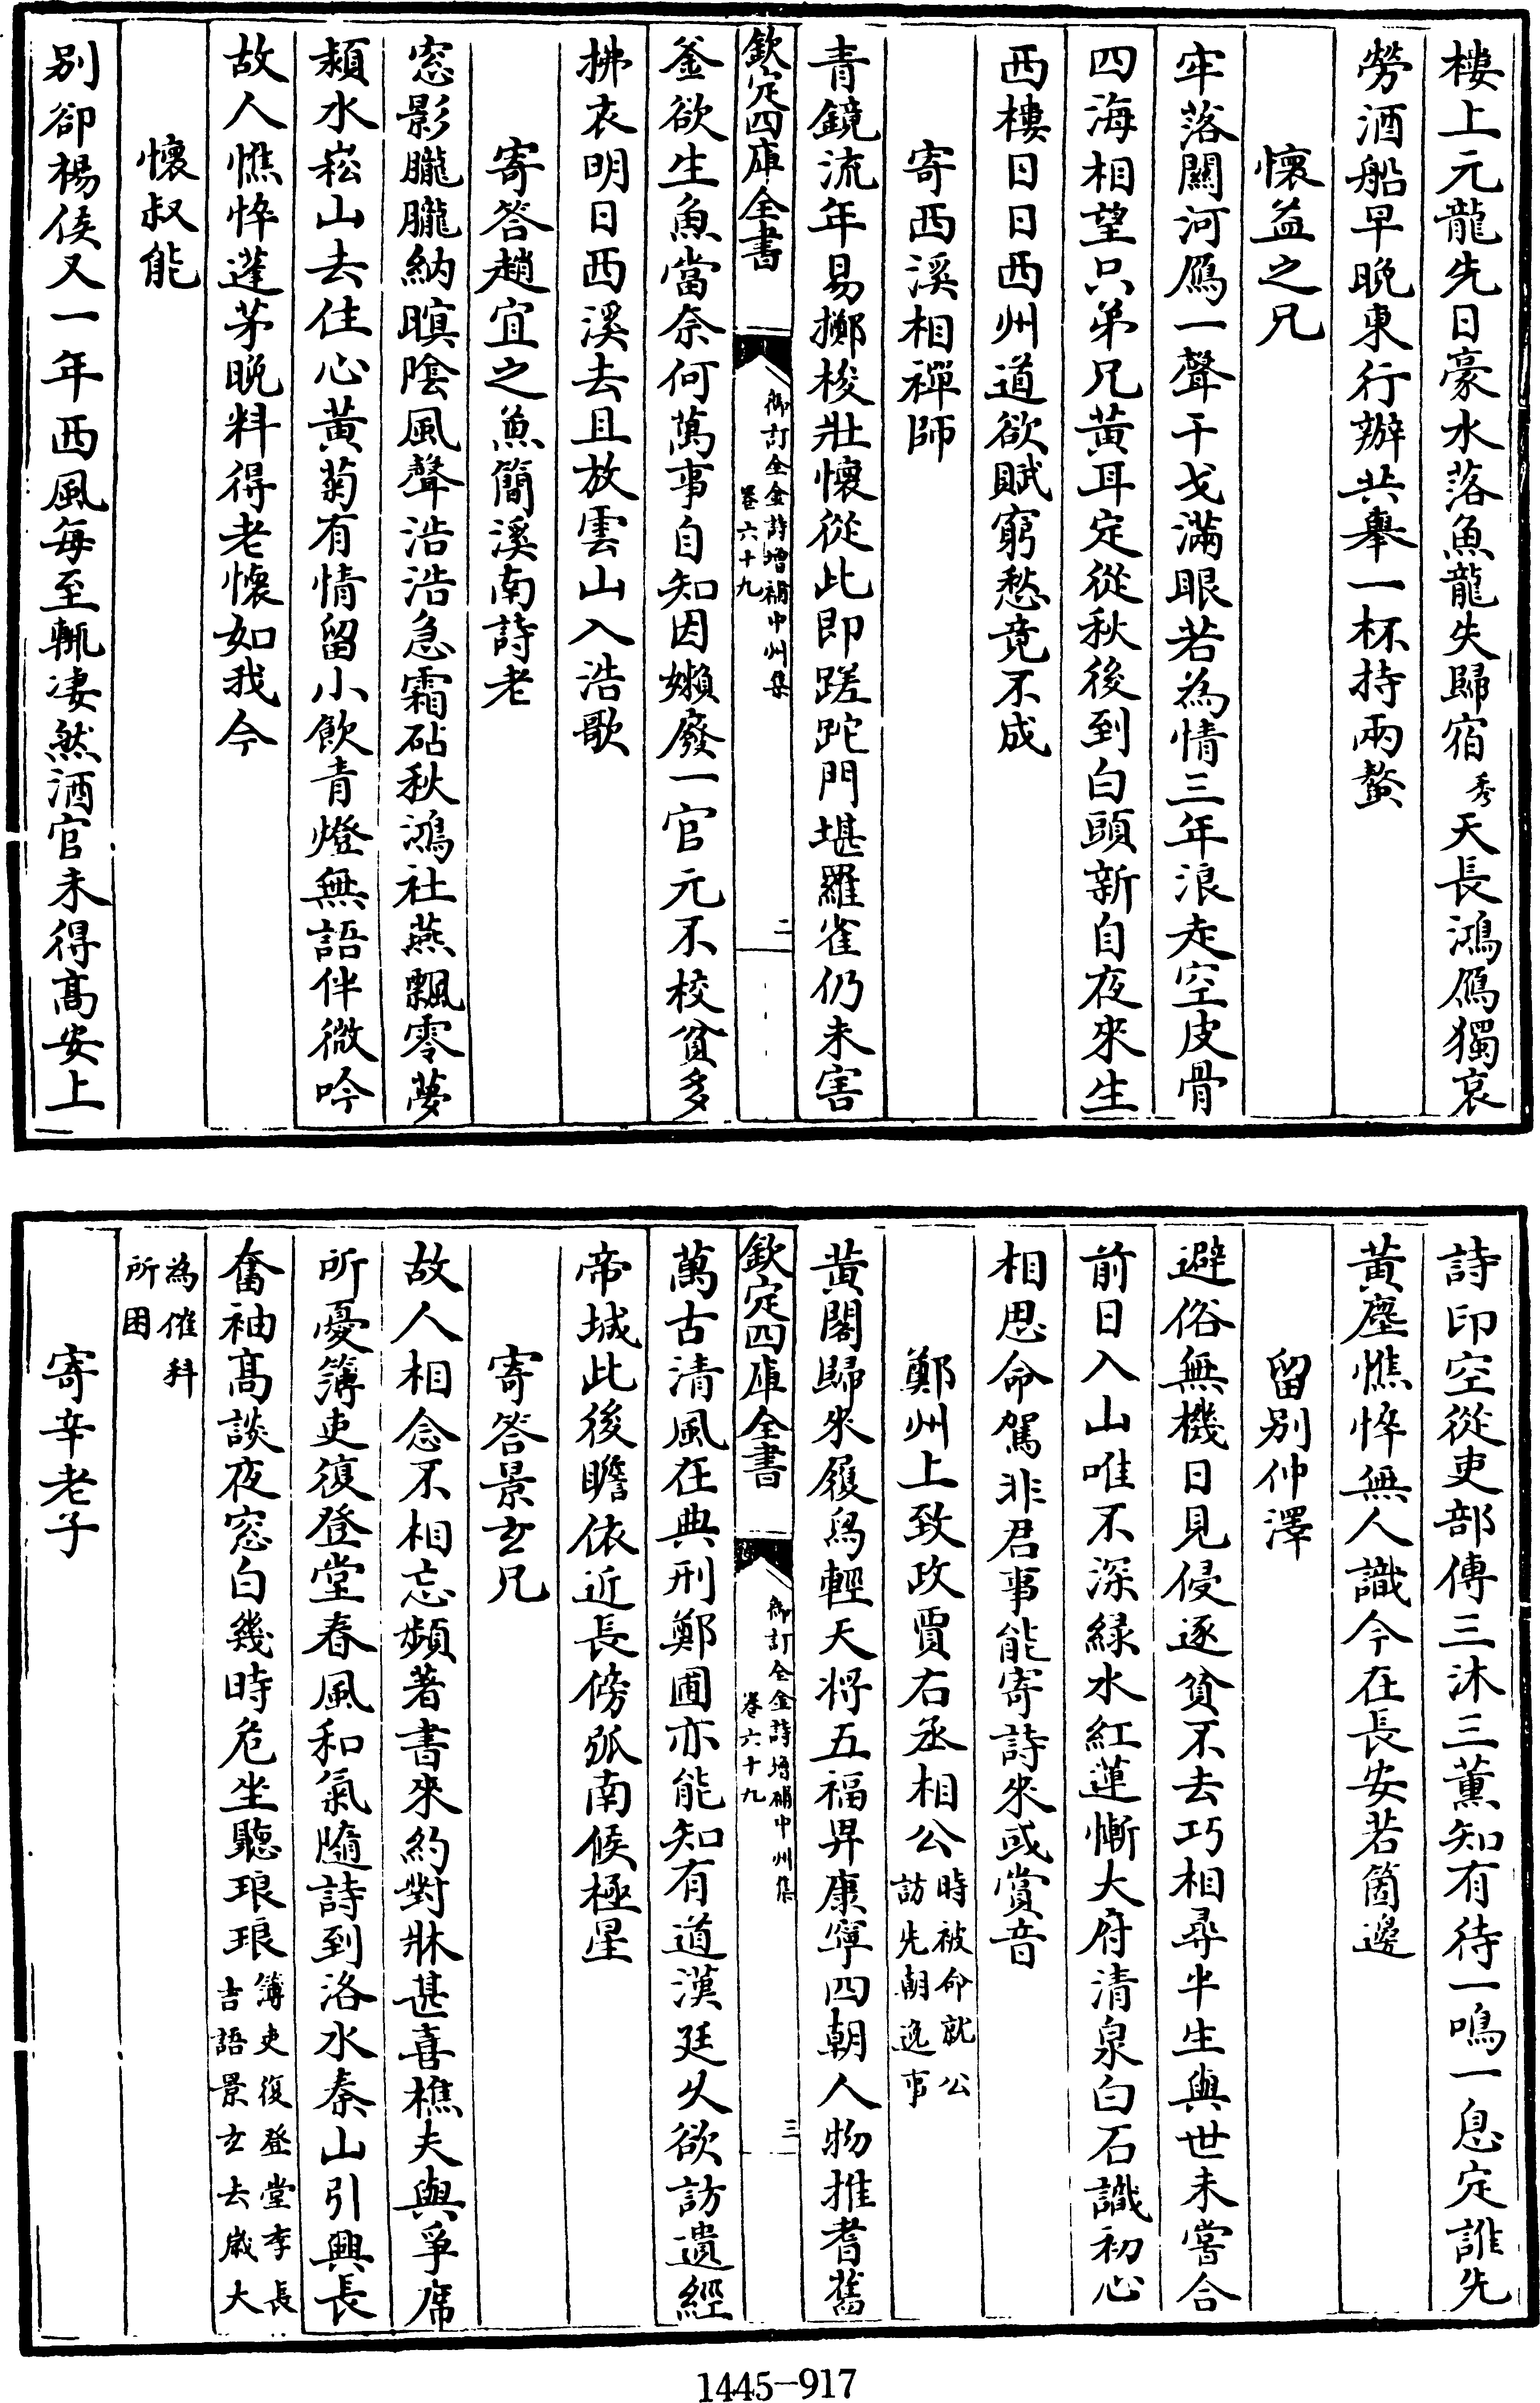 樓上元龍先日豪水落魚龍失歸宿秀天長鴻鴈獨哀
勞酒船早晚東行辦共舉一杯持兩螯
懷益之兄
牢落關河鴈一聲干戈滿眼若為情三年浪走空皮骨
四海相望只弟兄黃耳定從秋後到白頭新自夜來生
西樓日日西州道欲賦窮愁竟不成
寄西溪相禪師
青鏡流年易擲梭壯懷從此即蹉跎門堪羅雀仍未害
欽定四庫全書
御訂全金詩增補中州集
卷六十九
二
釜欲生魚當奈何萬事自知因嬾廢一官元不校貧多
拂衣明日西溪去且放雲山入浩歌
寄答趙宜之兼簡溪南詩老
窓影朧朧納暝陰風聲浩浩急霜砧秋鴻社燕飄零夢
潁水崧山去住心黃菊有情留小飲青燈無語伴微吟
故人憔悴蓬茅晚料得老懷如我今
懷叔能
別卻楊侯又一年西風每至輒凄然酒官未得高安上
詩印空從吏部傳三沐三薰知有待一鳴一息定誰先
黃塵憔悴無人識今在長安若箇邊
留別仲澤
避俗無機日見侵逐貧不去巧相尋半生與世未嘗合
前日入山唯不深綠水紅蓮慚大府清泉白石識初心
相思命駕非君事能寄詩來或賞音
鄭州上致政賈右丞相公時被命就公
訪先朝逸事
黃閣歸來履舄輕天將五福畀康寧四朝人物推耆舊
欽定四庫全書
御訂全金詩增補中州集
卷六十九
三
萬古清風在典刑鄭圃亦能知有道漢廷久欲訪遺經
帝城此後瞻依近長傍弧南候極星
寄答景玄兄
故人相念不相忘頻著書來約對牀甚喜樵夫與爭席
所憂簿吏復登堂春風和氣隨詩到洛水秦山引興長
奮袖高談夜窓白幾時危坐聽琅琅簿吏復登堂李長
吉語景玄去歲大
為催科
所困
寄辛老子
1445-917